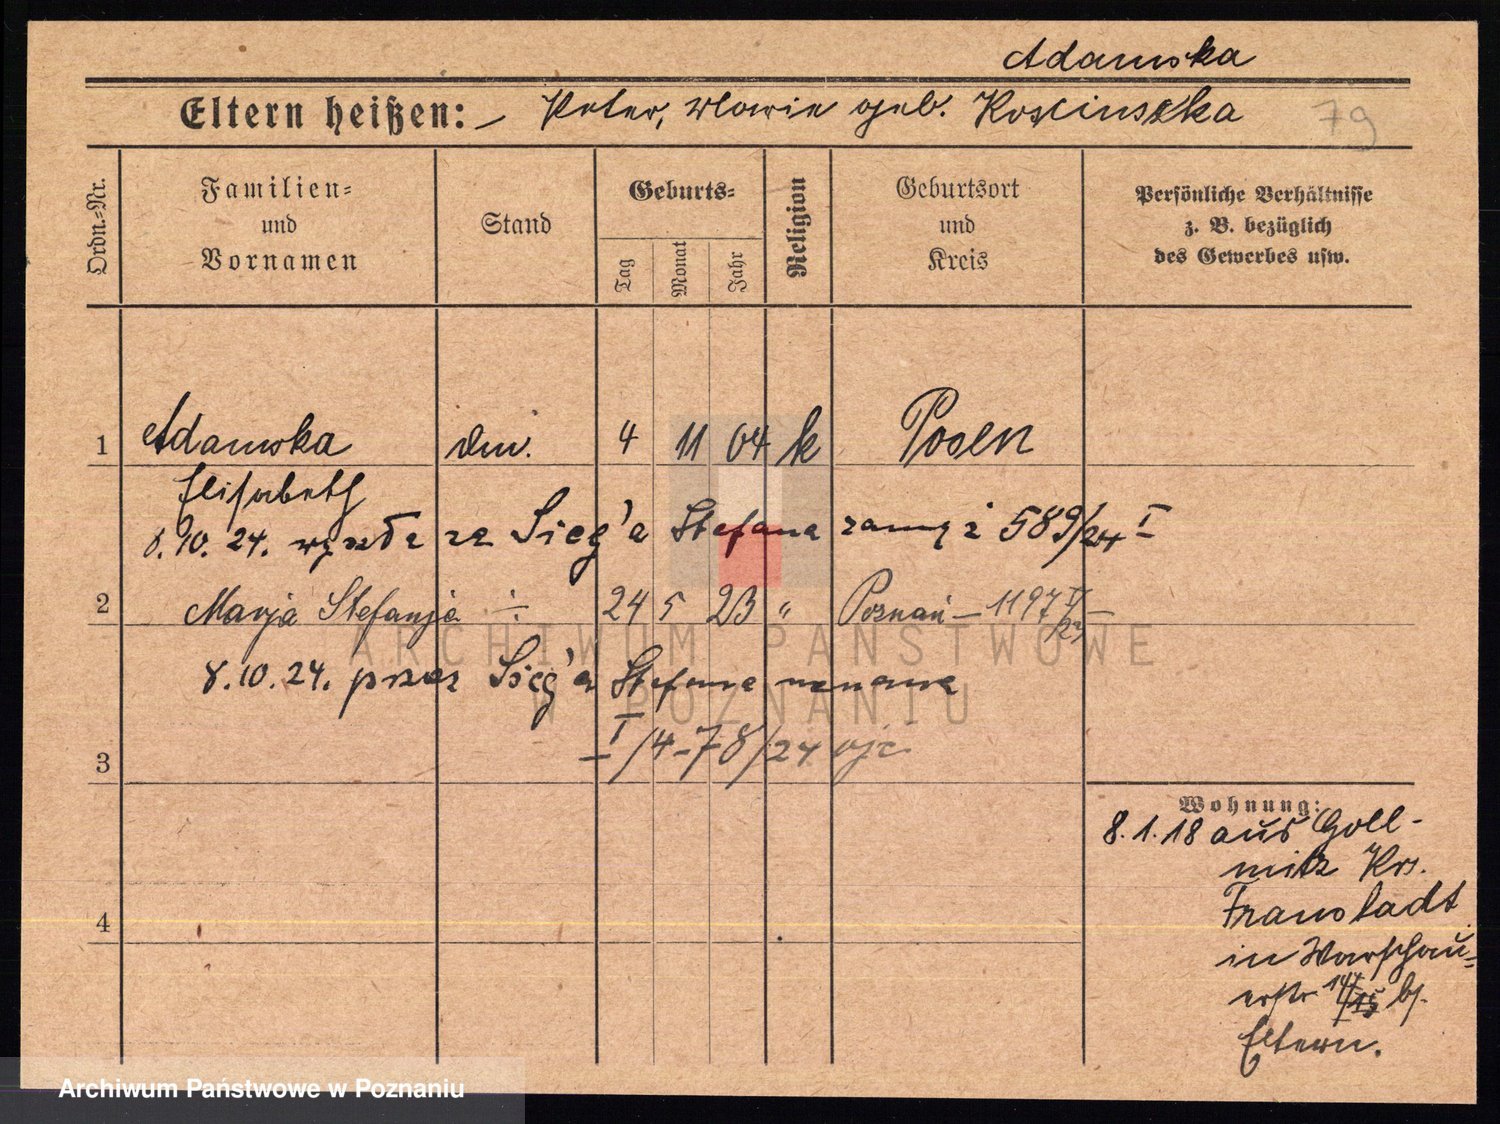 Adamska
Eltern heißen: Peter, Marie geb. Koscinska
79
Ordn.-Nr.
Familien- und Vornamen
Stand
Geburts-
Tag
Monat
Jahr
Religion
Geburtsort und Kreis
Persönliche Verhältnisse z. B. bezüglich des Gewerbes usw.
1 Adamska 4 11 04 k Posen
Elisabeth
8.10.24. wyszła za Sieg'a Stefana zamąż 589/24 I
2 Marja Stefanja ÷ 24 5 23 " Poznań – 1197 /23
8.10.24. przez Sieg'a Stefana uznana
3 I/4-78/24
4
Wohnung:
8.1.18 aus Goll-
mitz Krs.
Fraustadt
in Warschau-
erstr 14/15 b/.
Eltern.
ARCHIWUM PAŃSTWOWE
W POZNANIU
Archiwum Państwowe w Poznaniu